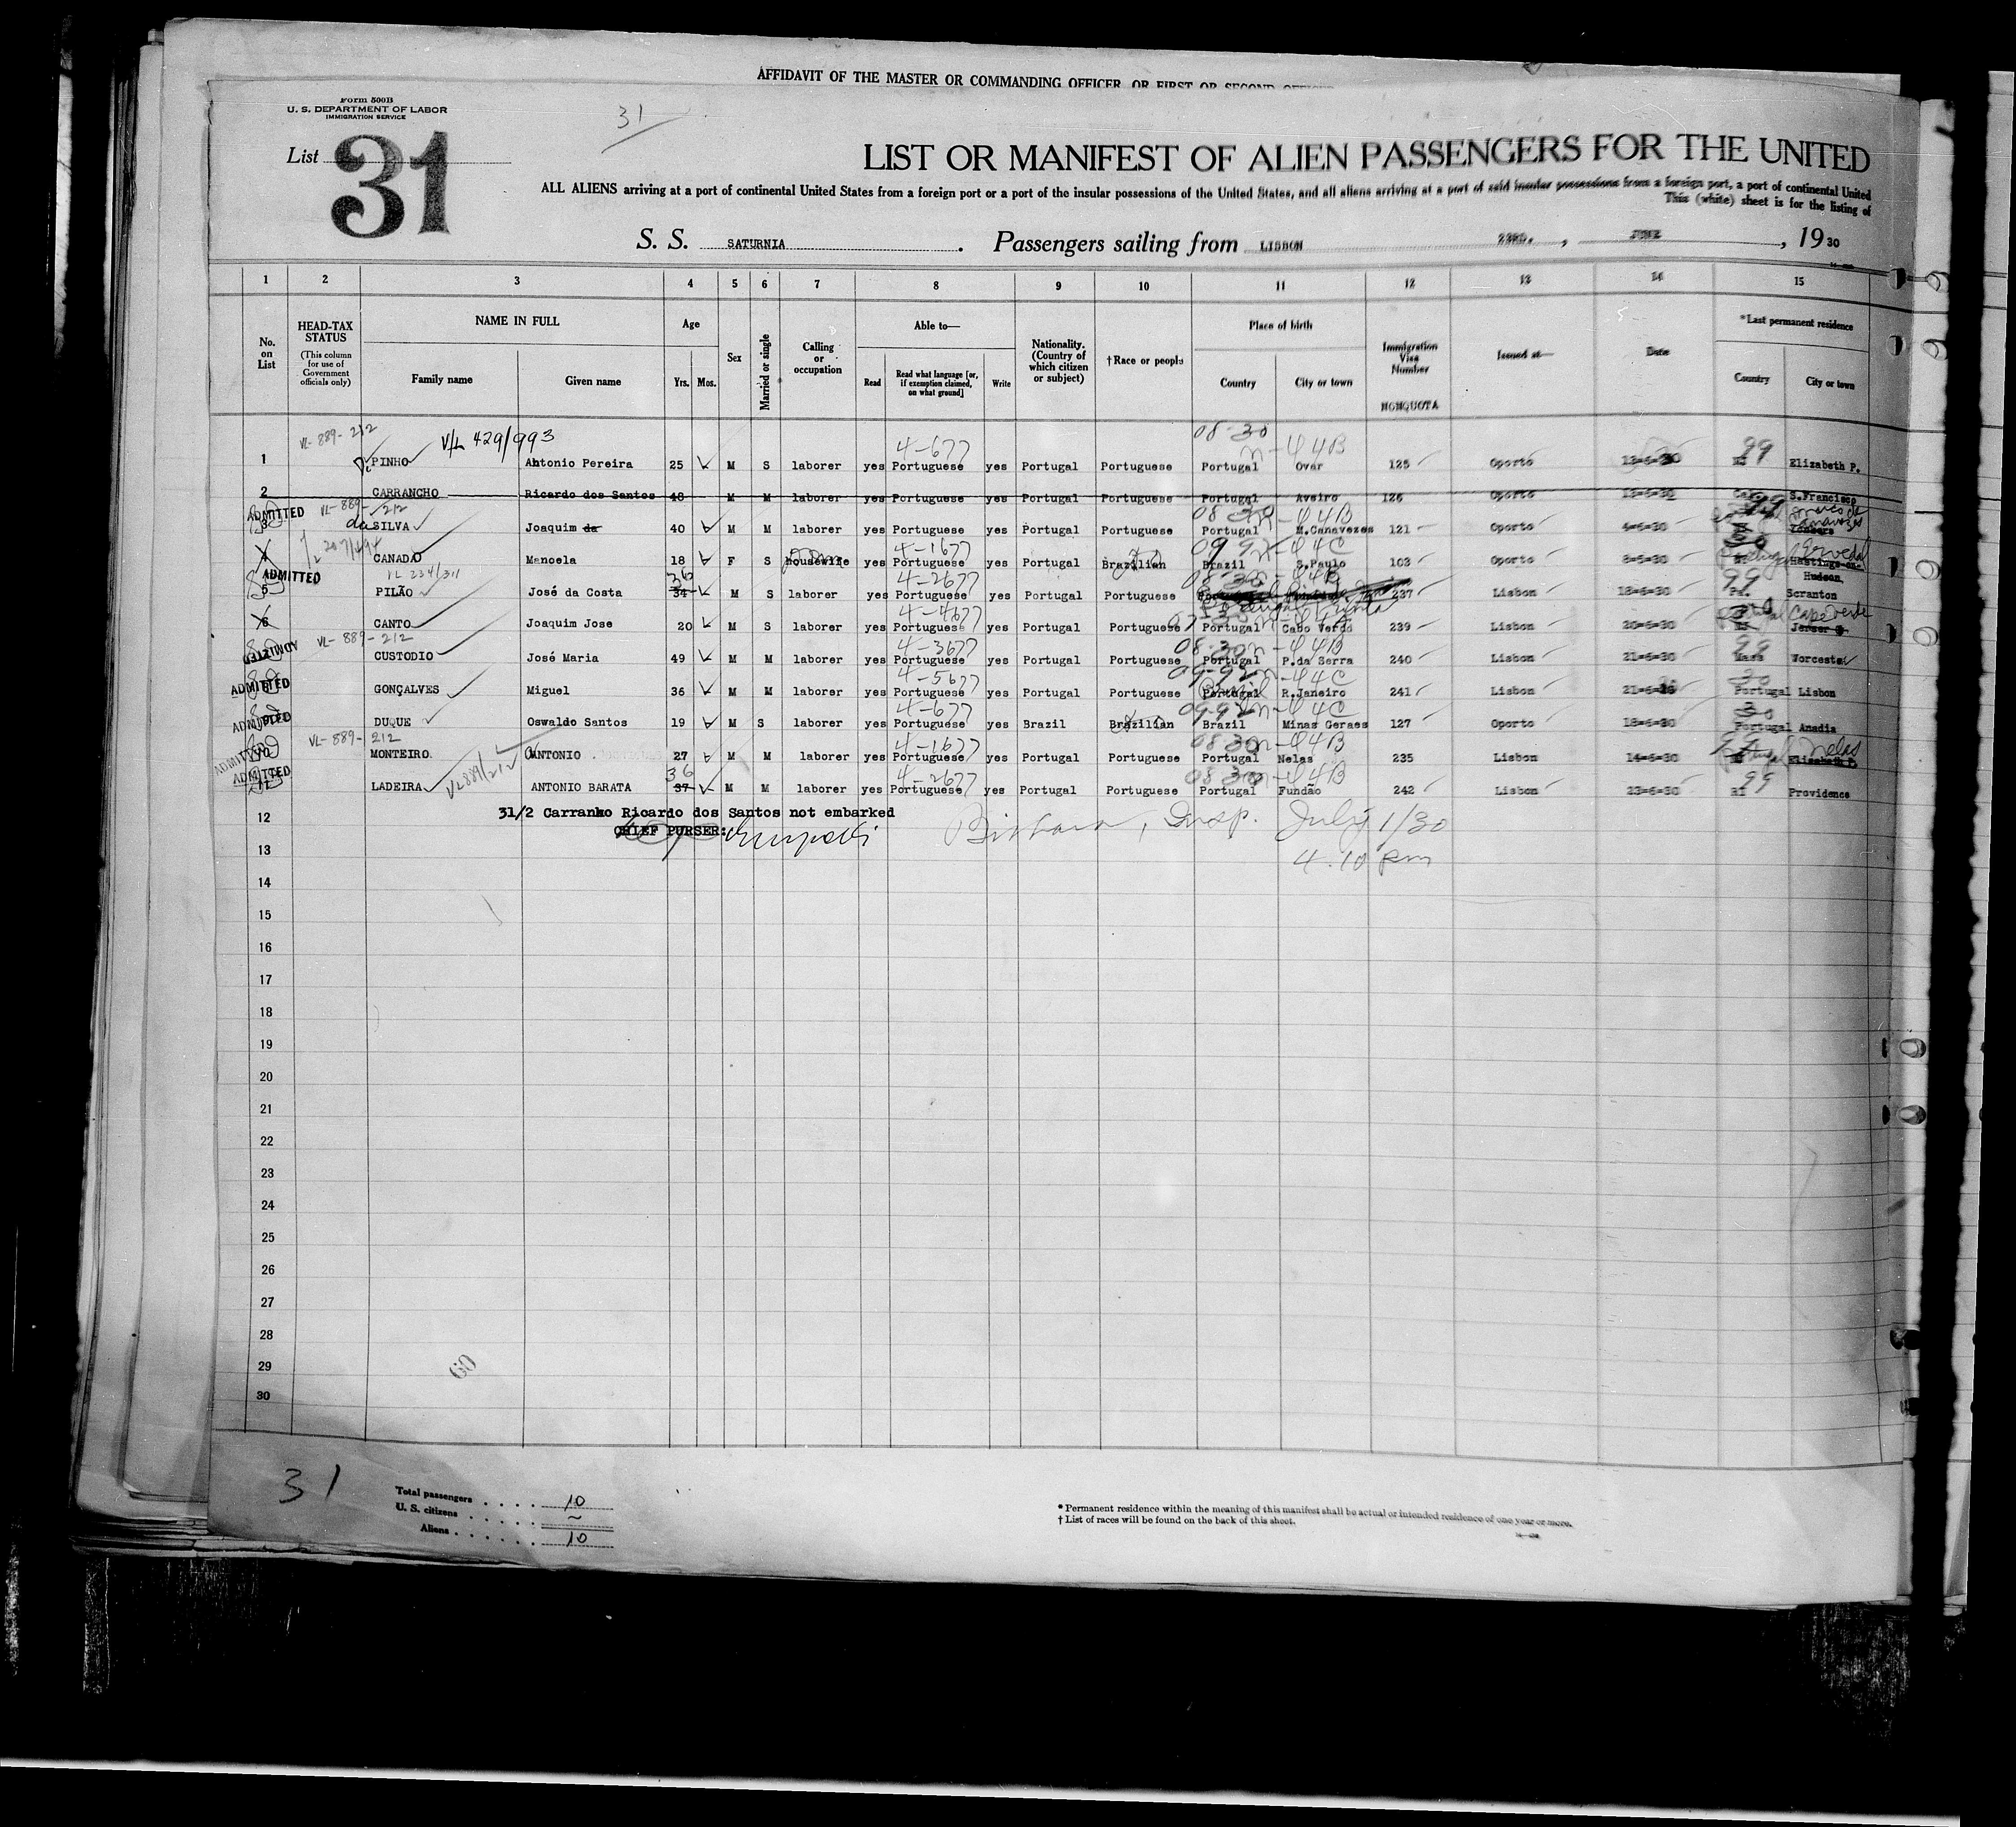 AFFIDAVIT OF THE MASTER OR COMMANDING OFFICER, OR FIRST OR SECOND OFFICER
Form 500B
U. S. DEPARTMENT OF LABOR
IMMIGRATION SERVICE
31
List 31
LIST OR MANIFEST OF ALIEN PASSENGERS FOR THE UNITED
ALL ALIENS arriving at a port of continental United States from a foreign port or a port of the insular possessions of the United States, and all aliens arriving at a port of said insular possessions from a foreign port, a port of continental United
This (white) sheet is for the listing of
S. S. SATURNIA . Passengers sailing from LISBON 23RD. , JUNE , 19 30
1 2 3 4 5 6 7 8 9 10 11 12 13 14 15
No. on List
HEAD-TAX STATUS (This column for use of Government officials only)
NAME IN FULL
Family name Given name
Age
Yrs. Mos.
Sex
Married or single
Calling or occupation
Able to—
Read Read what language [or, if exemption claimed, on what ground] Write
Nationality. (Country of which citizen or subject)
†Race or people
Place of birth
Country City or town
Immigration Visa Number
NONQUOTA
Issued at—
Date
*Last permanent residence
Country City or town
VL-889-212 V/L 429/993 4-677 08-30 n-44B 99
1 PINHO Antonio Pereira 25 M S laborer yes Portuguese yes Portugal Portuguese Portugal Ovar 125 Oporto 13-6-30 NJ Elizabeth P.
2 CARRANCHO Ricardo dos Santos 48 M M laborer yes Portuguese yes Portugal Portuguese Portugal Aveiro 126 Oporto 13-6-30 Cal. S.Francisco
ADMITTED VL-889-212 08 30 n-44B 99
3 da SILVA Joaquim da 40 M M laborer yes Portuguese yes Portugal Portuguese Portugal M.Canavezes 121 Oporto 4-6-30 Yonkers
4-1677 09 92 n-44C
4 CANADO Manoela 18 F S housewife yes Portuguese yes Portugal Brazilian Brazil S.Paulo 103 Oporto 8-6-30 Hastings-on-Hudson
ADMITTED VL 234/311 36 4-2677 08-30 n-44B 99
5 PILÃO José da Costa 34 M S laborer yes Portuguese yes Portugal Portuguese Portugal 237 Lisbon 18-6-30 Pa. Scranton
4-4677 n-44B Cape Verde
6 CANTO Joaquim Jose 20 M S laborer yes Portuguese yes Portugal Portuguese Portugal Cabo Verde 239 Lisbon 20-6-30 NJ Jerser
ADMITTED VL-889-212 4-3677 08-30 n-44B 99
7 CUSTODIO José Maria 49 M M laborer yes Portuguese yes Portugal Portuguese Portugal P.da Serra 240 Lisbon 21-6-30 Mass Worcester
ADMITTED 4-5677 09-92 n-44C 30
8 GONÇALVES Miguel 36 M M laborer yes Portuguese yes Portugal Portuguese Portugal Brazil R.Janeiro 241 Lisbon 21-6-30 Portugal Lisbon
ADMITTED 4-677 09-92 n-44C 30
9 DUQUE Oswaldo Santos 19 M S laborer yes Portuguese yes Brazil Brazilian Brazil Minas Geraes 127 Oporto 18-6-30 Portugal Anadia
ADMITTED VL-889-212 4-1677 08 30 n-44B Portugal Nelas
10 MONTEIRO ANTONIO 27 M M laborer yes Portuguese yes Portugal Portuguese Portugal Nelas 235 Lisbon 14-6-30 NJ Elizabeth P.
ADMITTED VL889/212 36 4-2677 08 30 n-44B 99
11 LADEIRA ANTONIO BARATA 37 M M laborer yes Portuguese yes Portugal Portuguese Portugal Fundão 242 Lisbon 23-6-30 RI Providence
12 31/2 Carranho Ricardo dos Santos not embarked
CHIEF PURSER: Insp. July 1/30
13 4.10 pm
14
15
16
17
18
19
20
21
22
23
24
25
26
27
28
29 60
30
31
Total passengers . . . . 10
U. S. citizens . . . . . ~
Aliens . . . . . . 10
* Permanent residence within the meaning of this manifest shall be actual or intended residence of one year or more.
† List of races will be found on the back of this sheet.